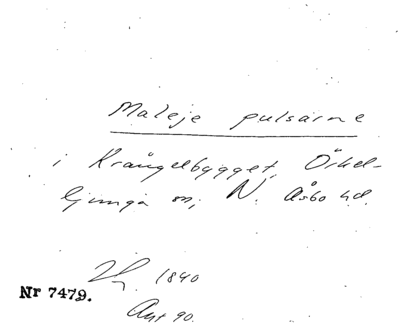 Maleje pulsarne
i Krångelbygget, Örkel-
ljunga sn, N. Åsbo hd.
1840
Nr 7479.
Ant 90.